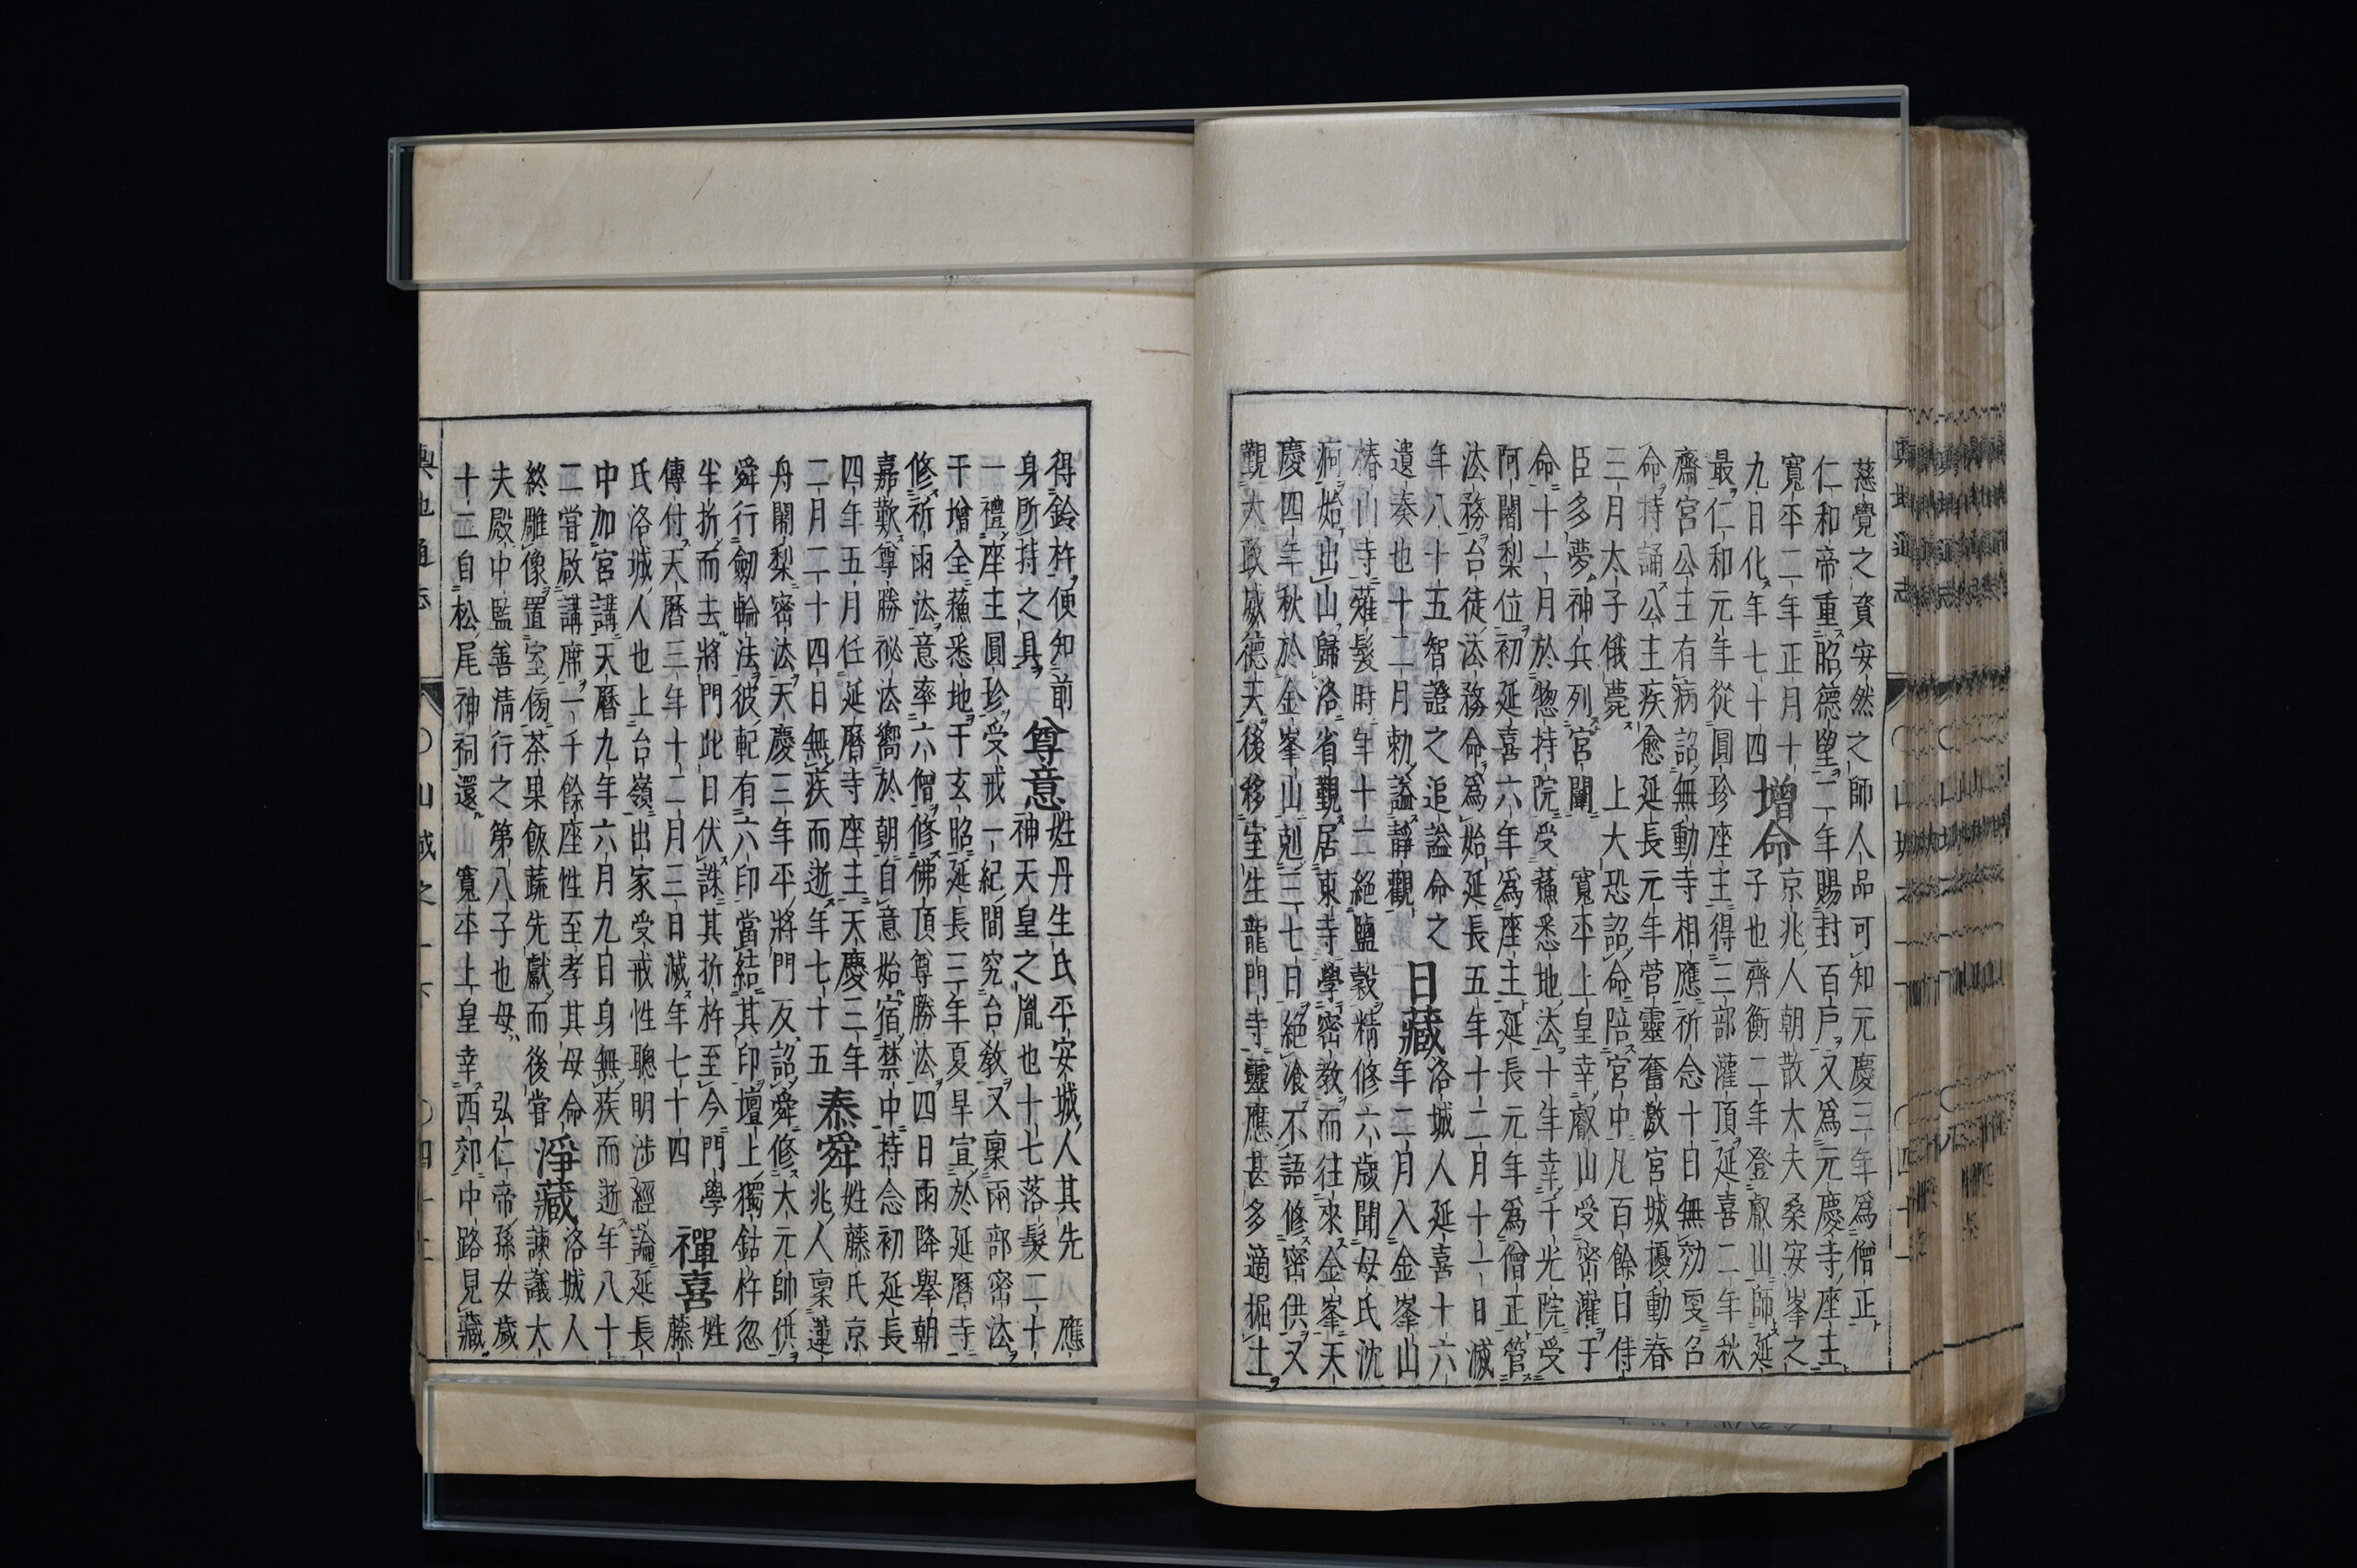 慈覺之資安然之師人品可知元慶三年爲僧正
仁和帝重昭德望二年賜封百戶又爲元慶寺座主
寬平二年正月十
九日化年七十四
增命
京兆人朝散大夫桑安峯之
子也齊衡二年登叡山師延
最仁和元年從圓珍座主得三部灌頂延喜二年秋
齋宮公主有病詔無動寺相應祈念十日無効更召
命持誦公主疾愈延長元年菅靈奮激宮城擾動春
三月太子俄薨 上大恐詔命陪宮中凡百餘日侍
臣多夢神兵列宮闈 寬平上皇幸叡山受密灌于
命十一月於惣持院受蘓悉地法十年幸千光院受
阿闍梨位初延喜六年爲座主延長元年爲僧正管
法務台徒法務命爲始延長五年十二月十一日滅
年八十五智證之追謚命之
遺奏也十二月勅謚靜觀
日藏
洛城人延喜十六
年二月入金峯山
椿山寺薙髮時年十二絕鹽穀精修六歲聞母氏沈
痾始出山歸洛省覲居東寺學密教而往來金峯天
慶四年秋於金峯山剋三七日絕飡不語修密供又
覲大政威德天後移室生龍門寺靈應甚多適掘土
得鈴杵便知前
身所持之具
尊意
姓丹生氏平安城人其先 應
神天皇之胤也十七落髮二十
一禮座主圓珍受戒一紀間究台教又稟兩部密法
干增全蘓悉地干玄昭延長三年夏旱宣於延曆寺
修祈雨法意率六僧修佛頂尊勝法四日雨降舉朝
嘉歎尊勝祕法嚮於朝自意始宿禁中持念初延長
四年五月任延曆寺座主天慶三年
二月二十四日無疾而逝年七十五
泰舜
姓藤氏京
兆人稟蓮
舟闍梨密法天慶三年平將門反詔舜修太元帥供
舜行劒輪法彼軌有六印當結其印壇上獨鈷杵忽
半折而去將門此日伏誅其折杵至今門學
傳付天曆三年十二月三日滅年七十四
禪喜
姓藤
氏洛城人也上台嶺出家受戒性聰明涉經論延長
中加宮講天曆九年六月九日身無疾而逝年八十
二嘗啟講席一千餘座性至孝其母命
終雕像置室傍茶果飯蔬先獻而後嘗
淨藏
洛城人
諫議大
夫殿中監善清行之第八子也母 弘仁帝孫女歲
十二自松尾神祠還 寬平上皇幸西郊中路見藏
輿地通志
〇山城之一下